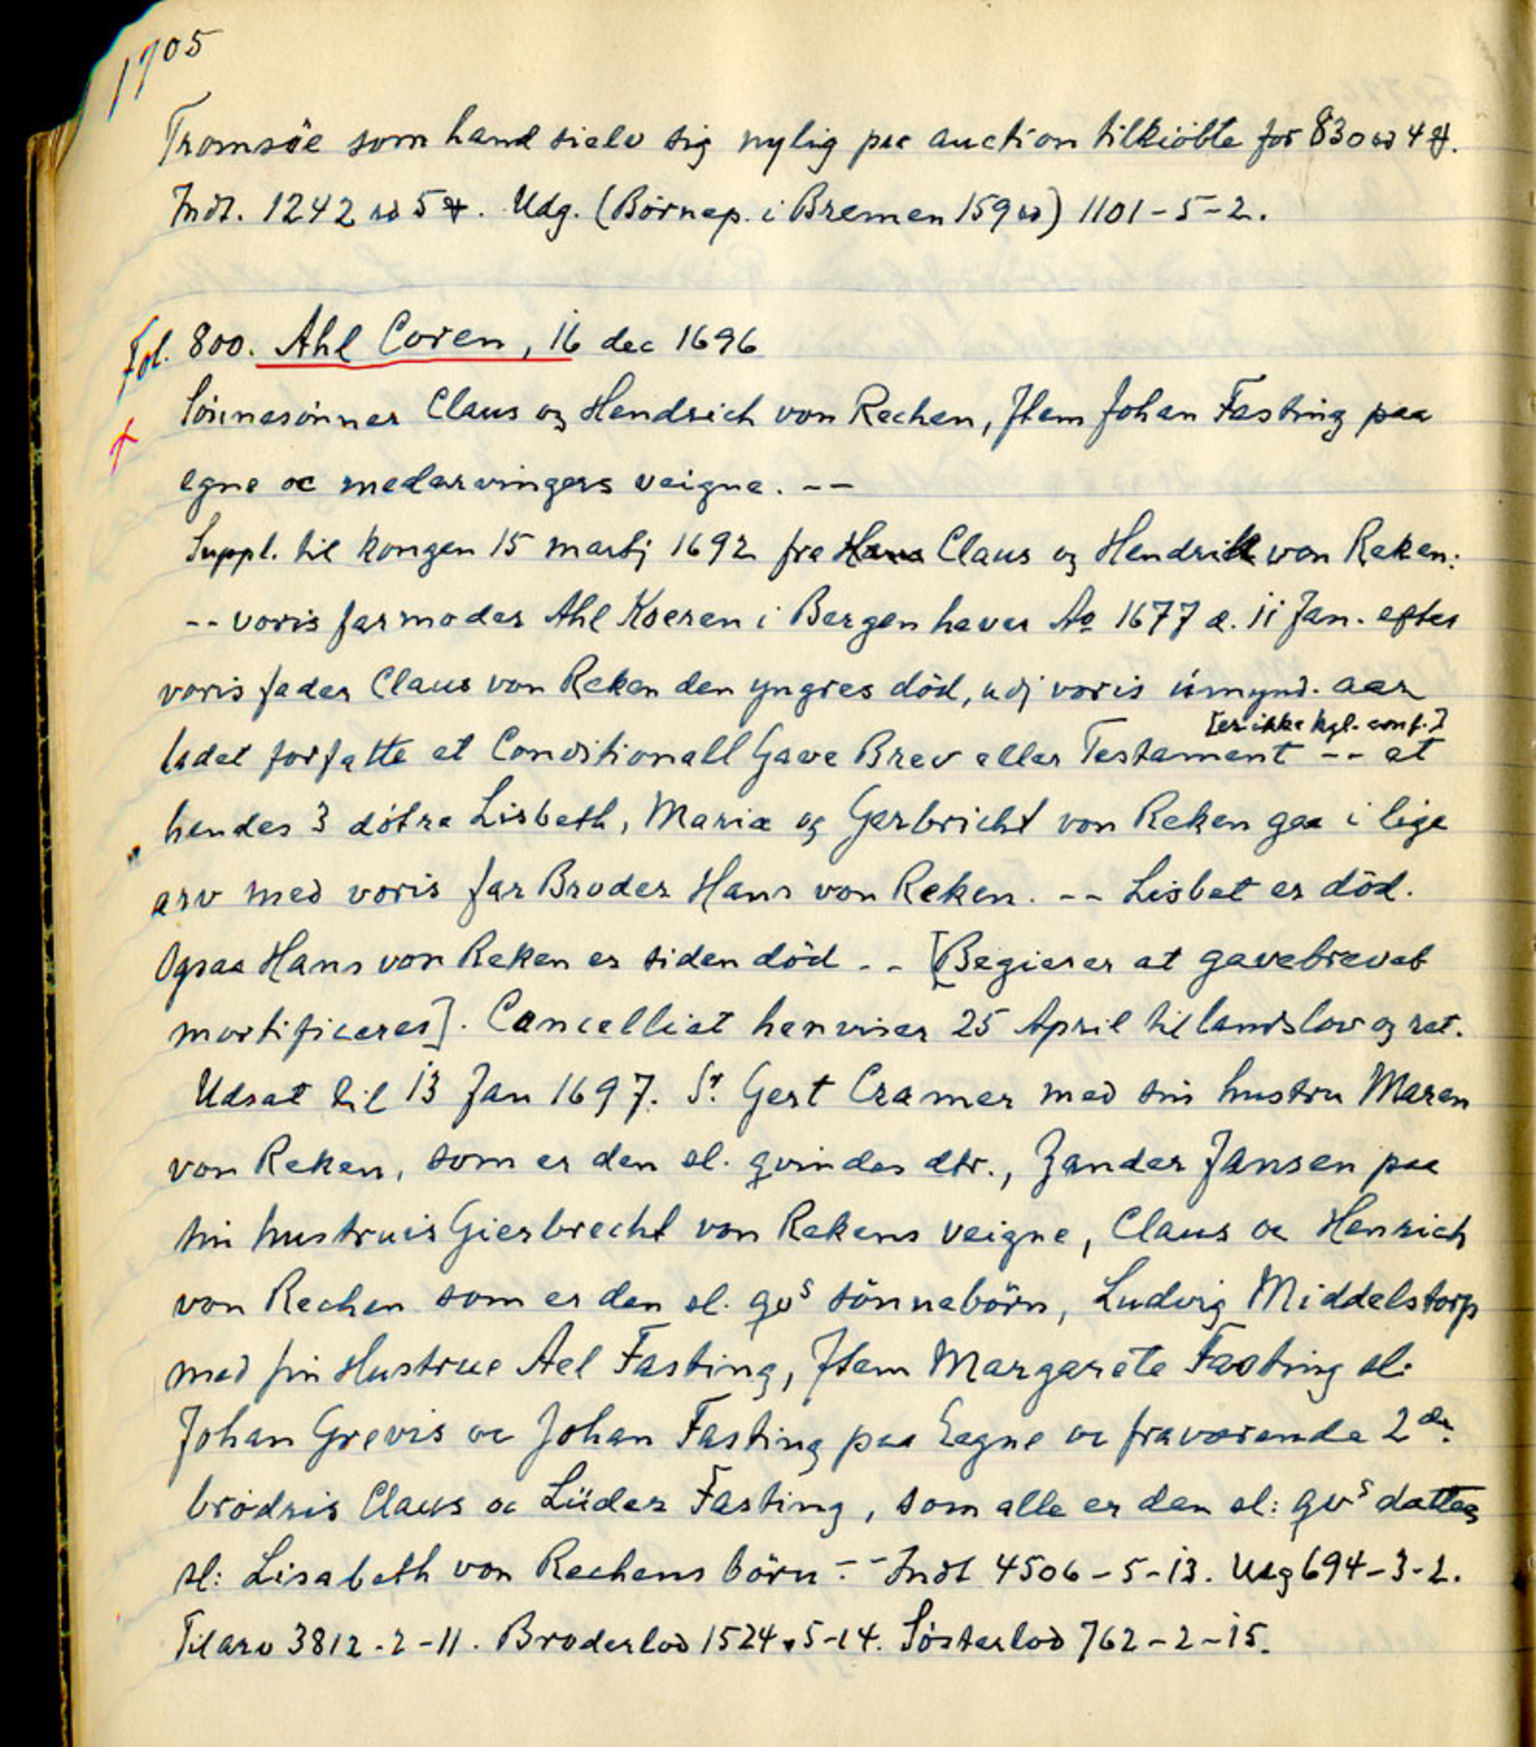 1705
Tromsöe som hand sielv sig nylig paa auction tilkiöbte for 830 rd 4 ℔.
Indt. 1242 rd 5 ℔. Udg. (Börnep. i Bremen 159 rd) 1101-5-2.
Fol. 800. Ahl Coren, 16 dec 1696
Sönnesönner Claus og Hendrich von Rechen, Item Johan Fasting paa
egne oc medarvingers veigne. --
Suppl. til kongen 15 martj 1692 fra Hans Claus og Hendrik von Reken:
-- voris farmoder Ahl Koeren i Bergen haver Ao 1677 d. 11 Jan. efter
voris fader Claus von Reken den yngres död, udj voris umynd. aar
[er ikke kgl. conf.]
ladet forfatte et Conditionall Gave Brev eller Testament -- at
hendes 3 döttre Lisbeth, Maria og Gerbricht von Reken gaa i lige
arv med voris far Broder Hans von Reken. -- Lisbet er död.
Ogsaa Hans von Reken er siden död -- [Begierer at gavebrevet
mortificeres]. Cancelliet henviser 25 April til landslov og ret.
Udsat til 13 Jan 1697. Sr. Gert Cramer med sin hustru Maren
von Reken, som er den sl. qvindes dtr., Zander Jansen paa
sin hustruis Gierbrecht von Rekens veigne, Claus oc Henrich
von Rechen som er den sl. qvs sönnebörn, Ludvig Middelstorp
med sin Hustrue Ael Fasting, Item Margarete Fasting sl:
Johan Grevis oc Johan Fasting paa Eegne oc fraværende 2de
brödris Claus oc Lüder Fasting, som alle er den sl: qvs datters
sl: Lisabeth von Rechens börn -- Indt 4506-5-13. Udg 694-3-2.
Til arv 3812-2-11. Broderlod 1524-5-14. Sösterlod 762-2-15.